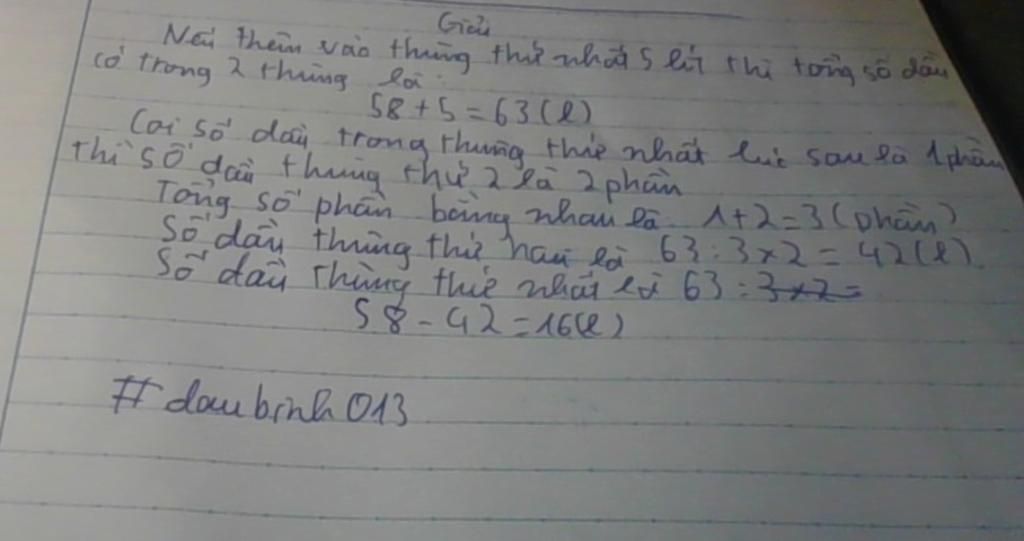 Giải
Nếu thêm vào thùng thứ nhất 5 lít thì tổng số dầu
có trong 2 thùng là:
58 + 5 = 63 (l)
Coi số dầu trong thùng thứ nhất lúc sau là 1 phần
thì số dầu thùng thứ 2 là 2 phần
Tổng số phần bằng nhau là 1 + 2 = 3 (phần)
Số dầu thùng thứ hai là 63 : 3 x 2 = 42 (l)
Số dầu thùng thứ nhất là 63 : 3 x 2 =
58 - 42 = 16 (l)
# daubinh013